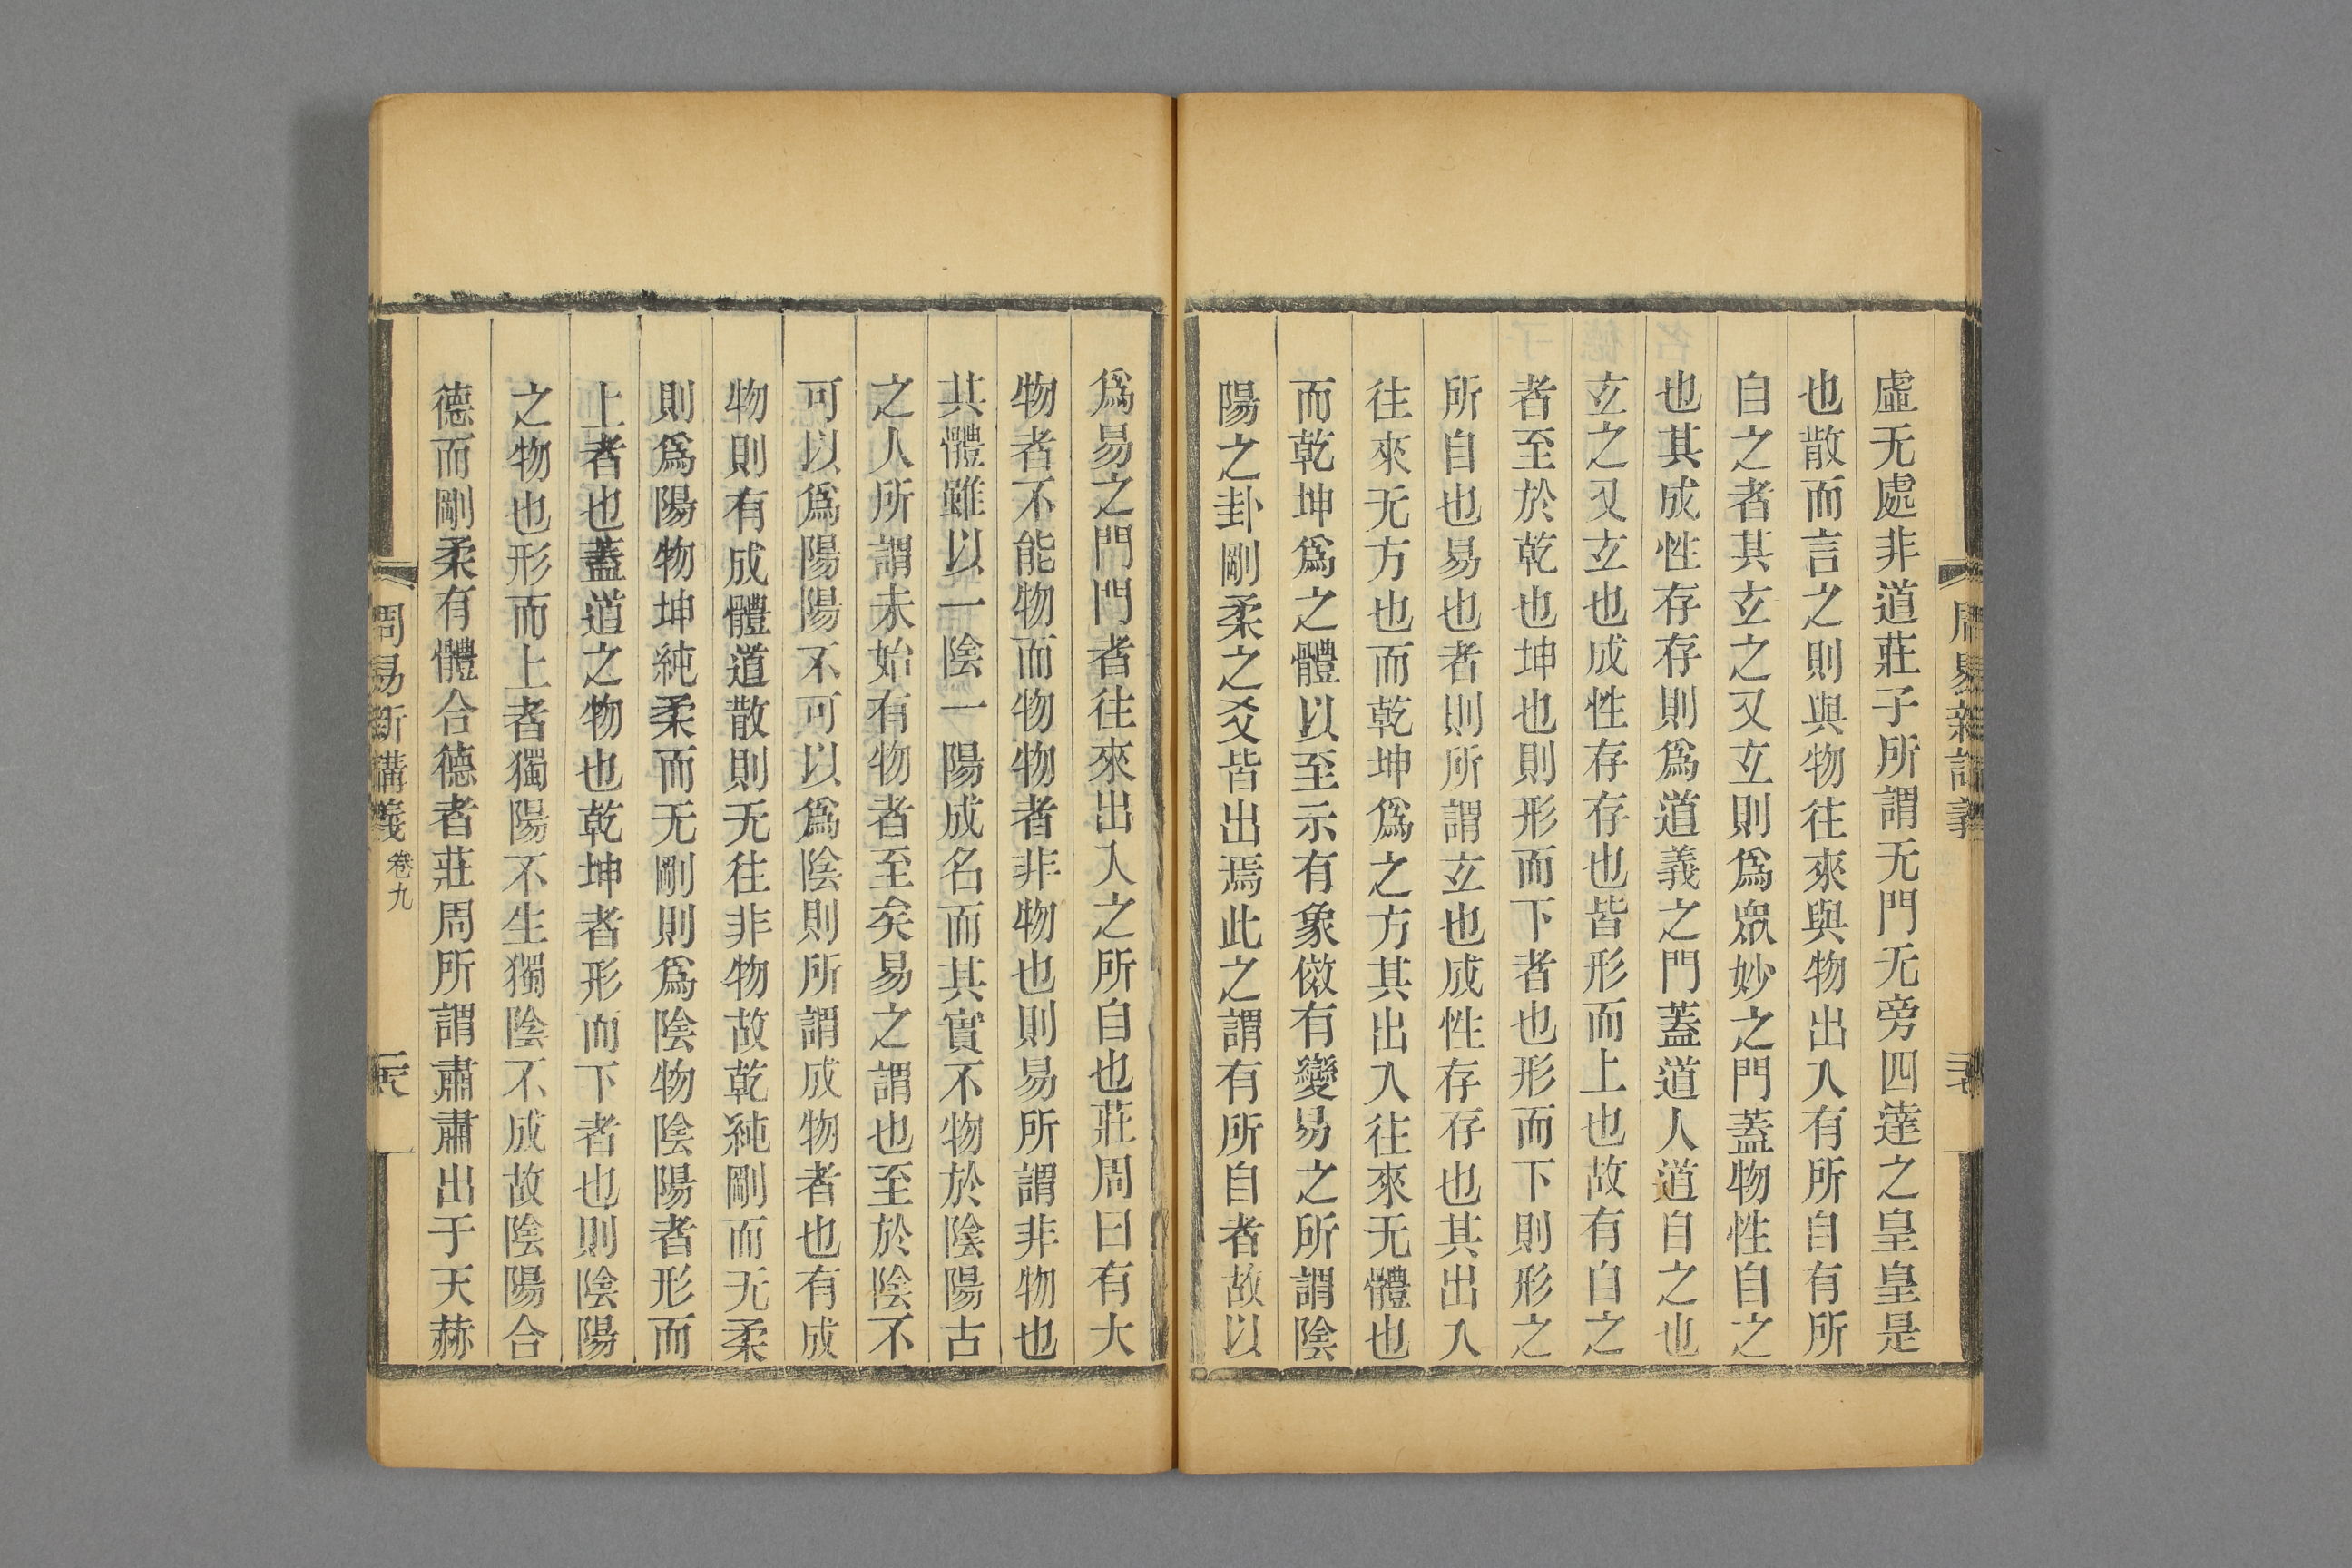 虛无處非道莊子所謂无門无旁四達之皇皇是
也散而言之則與物往來與物出入有所自有所
自之者其玄之又玄則爲眾妙之門蓋物性自之
也其成性存存則爲道義之門蓋道人道自之也
玄之又玄也成性存存也皆形而上也故有自之
者至於乾也坤也則形而下者也形而下則形之
所自也易也者則所謂玄也成性存存也其出入
往來无方也而乾坤爲之方其出入往來无體也
而乾坤爲之體以至示有象儌有變易之所謂陰
陽之卦剛柔之爻皆出焉此之謂有所自者故以
爲易之門門者往來出入之所自也莊周曰有大
物者不能物而物物者非物也則易所謂非物也
其體雖以一陰一陽成名而其實不物於陰陽古
之人所謂未始有物者至矣易之謂也至於陰不
可以爲陽陽不可以爲陰則所謂成物者也有成
物則有成體道散則无往非物故乾純剛而无柔
則爲陽物坤純柔而无剛則爲陰物陰陽者形而
上者也蓋道之物也乾坤者形而下者也則陰陽
之物也形而上者獨陽不生獨陰不成故陰陽合
德而剛柔有體合德者莊周所謂肅肅出于天赫
周易新講義 卷九